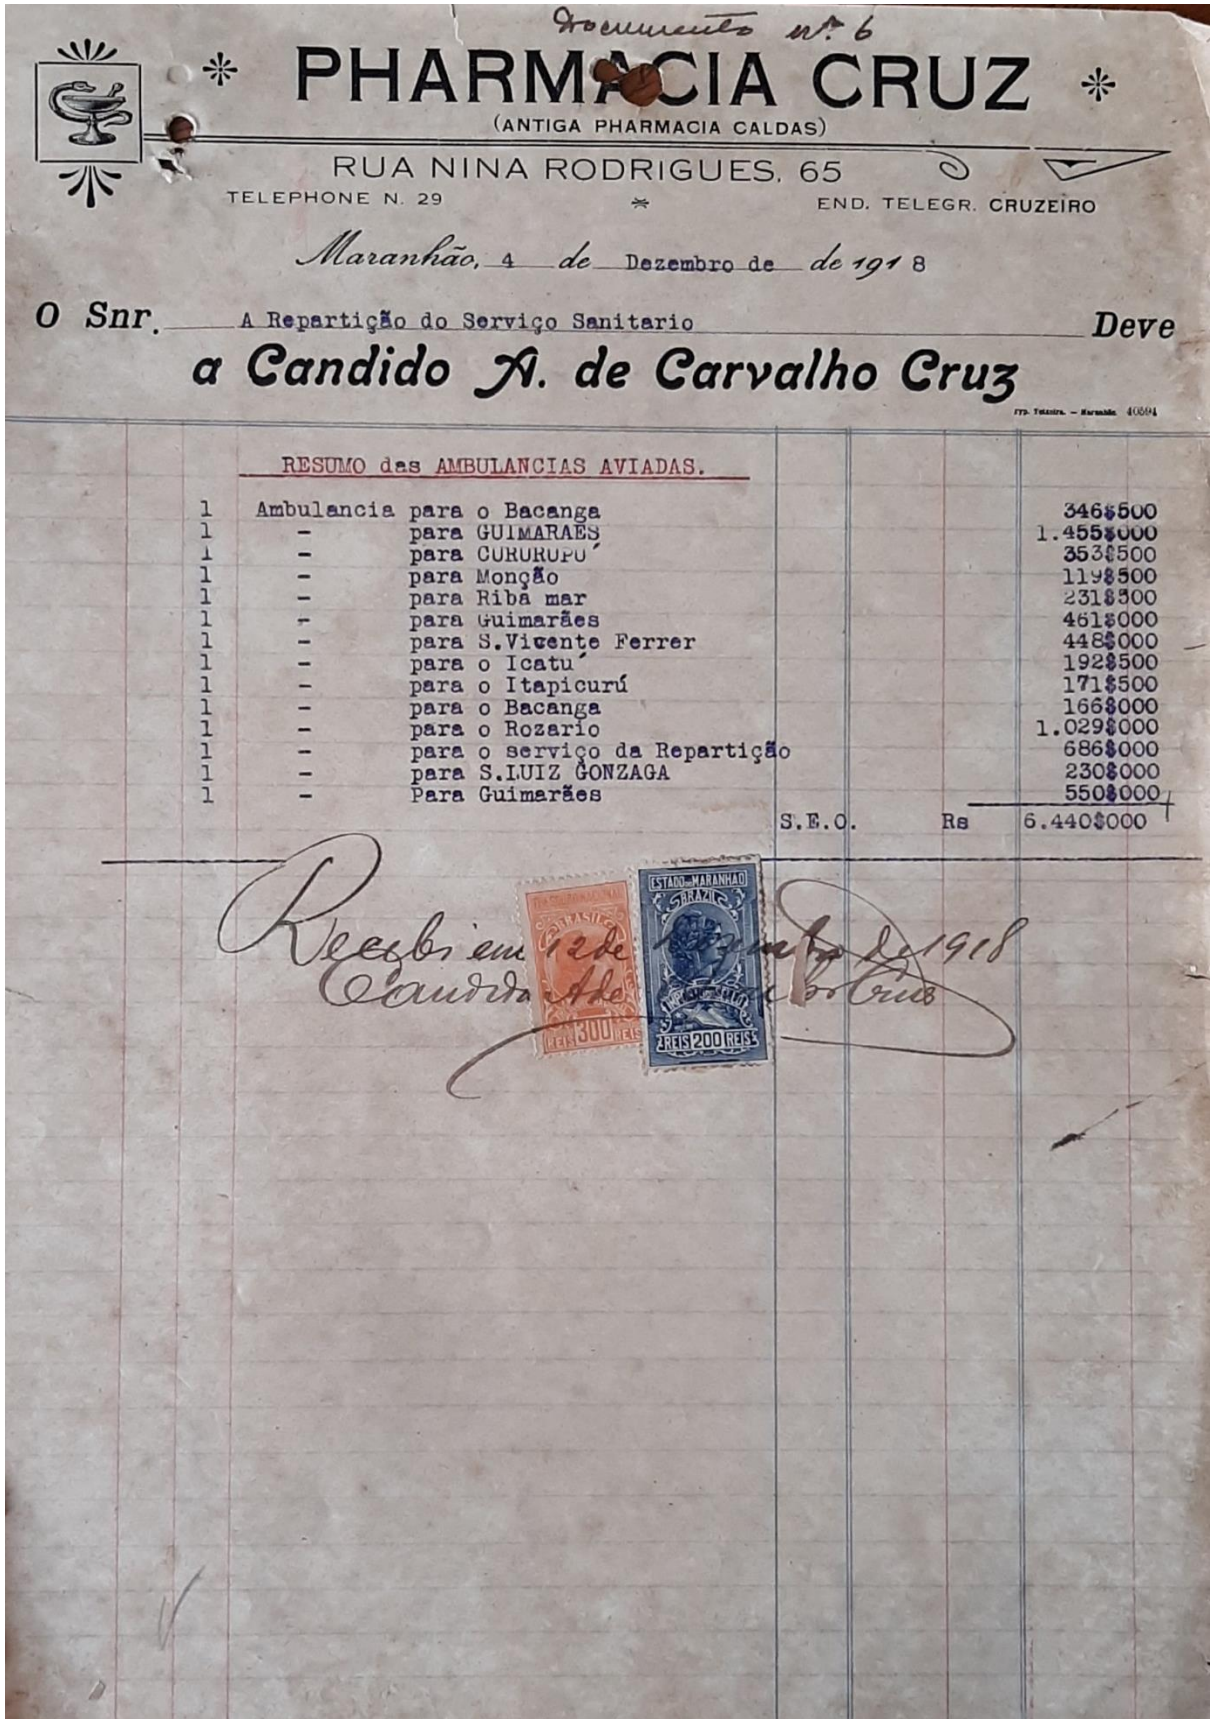 Documento nº 6
PHARMACIA CRUZ
(ANTIGA PHARMACIA CALDAS)
RUA NINA RODRIGUES, 65
TELEPHONE N. 29
END. TELEGR. CRUZEIRO
Maranhão, 4 de Dezembro de de 1918
O Snr. A Repartição do Serviço Sanitario Deve
a Candido A. de Carvalho Cruz
Typ. Teixeira. — Maranhão. 40594
RESUMO das AMBULANCIAS AVIADAS.
1 Ambulancia para o Bacanga 346$500
1 - para GUIMARAES 1.455$000
1 - para CURURUPU´ 353$500
1 - para Monção 119$500
1 - para Riba mar 231$500
1 - para Guimarães 461$000
1 - para S.Vicente Ferrer 448$000
1 - para o Icatu´ 192$500
1 - para o Itapicurú 171$500
1 - para o Bacanga 166$000
1 - para o Rozario 1.029$000
1 - para o serviço da Repartição 686$000
1 - para S.LUIZ GONZAGA 230$000
1 - Para Guimarães 550$000
S.E.O. Rs 6.440$000
ESTADO DO MARANHÃO
BRAZIL
BRASIL
Recebi em 12 de Dezembro de 1918
Candido A de Carvalho Cruz
REIS 300 REIS
REIS 200 REIS